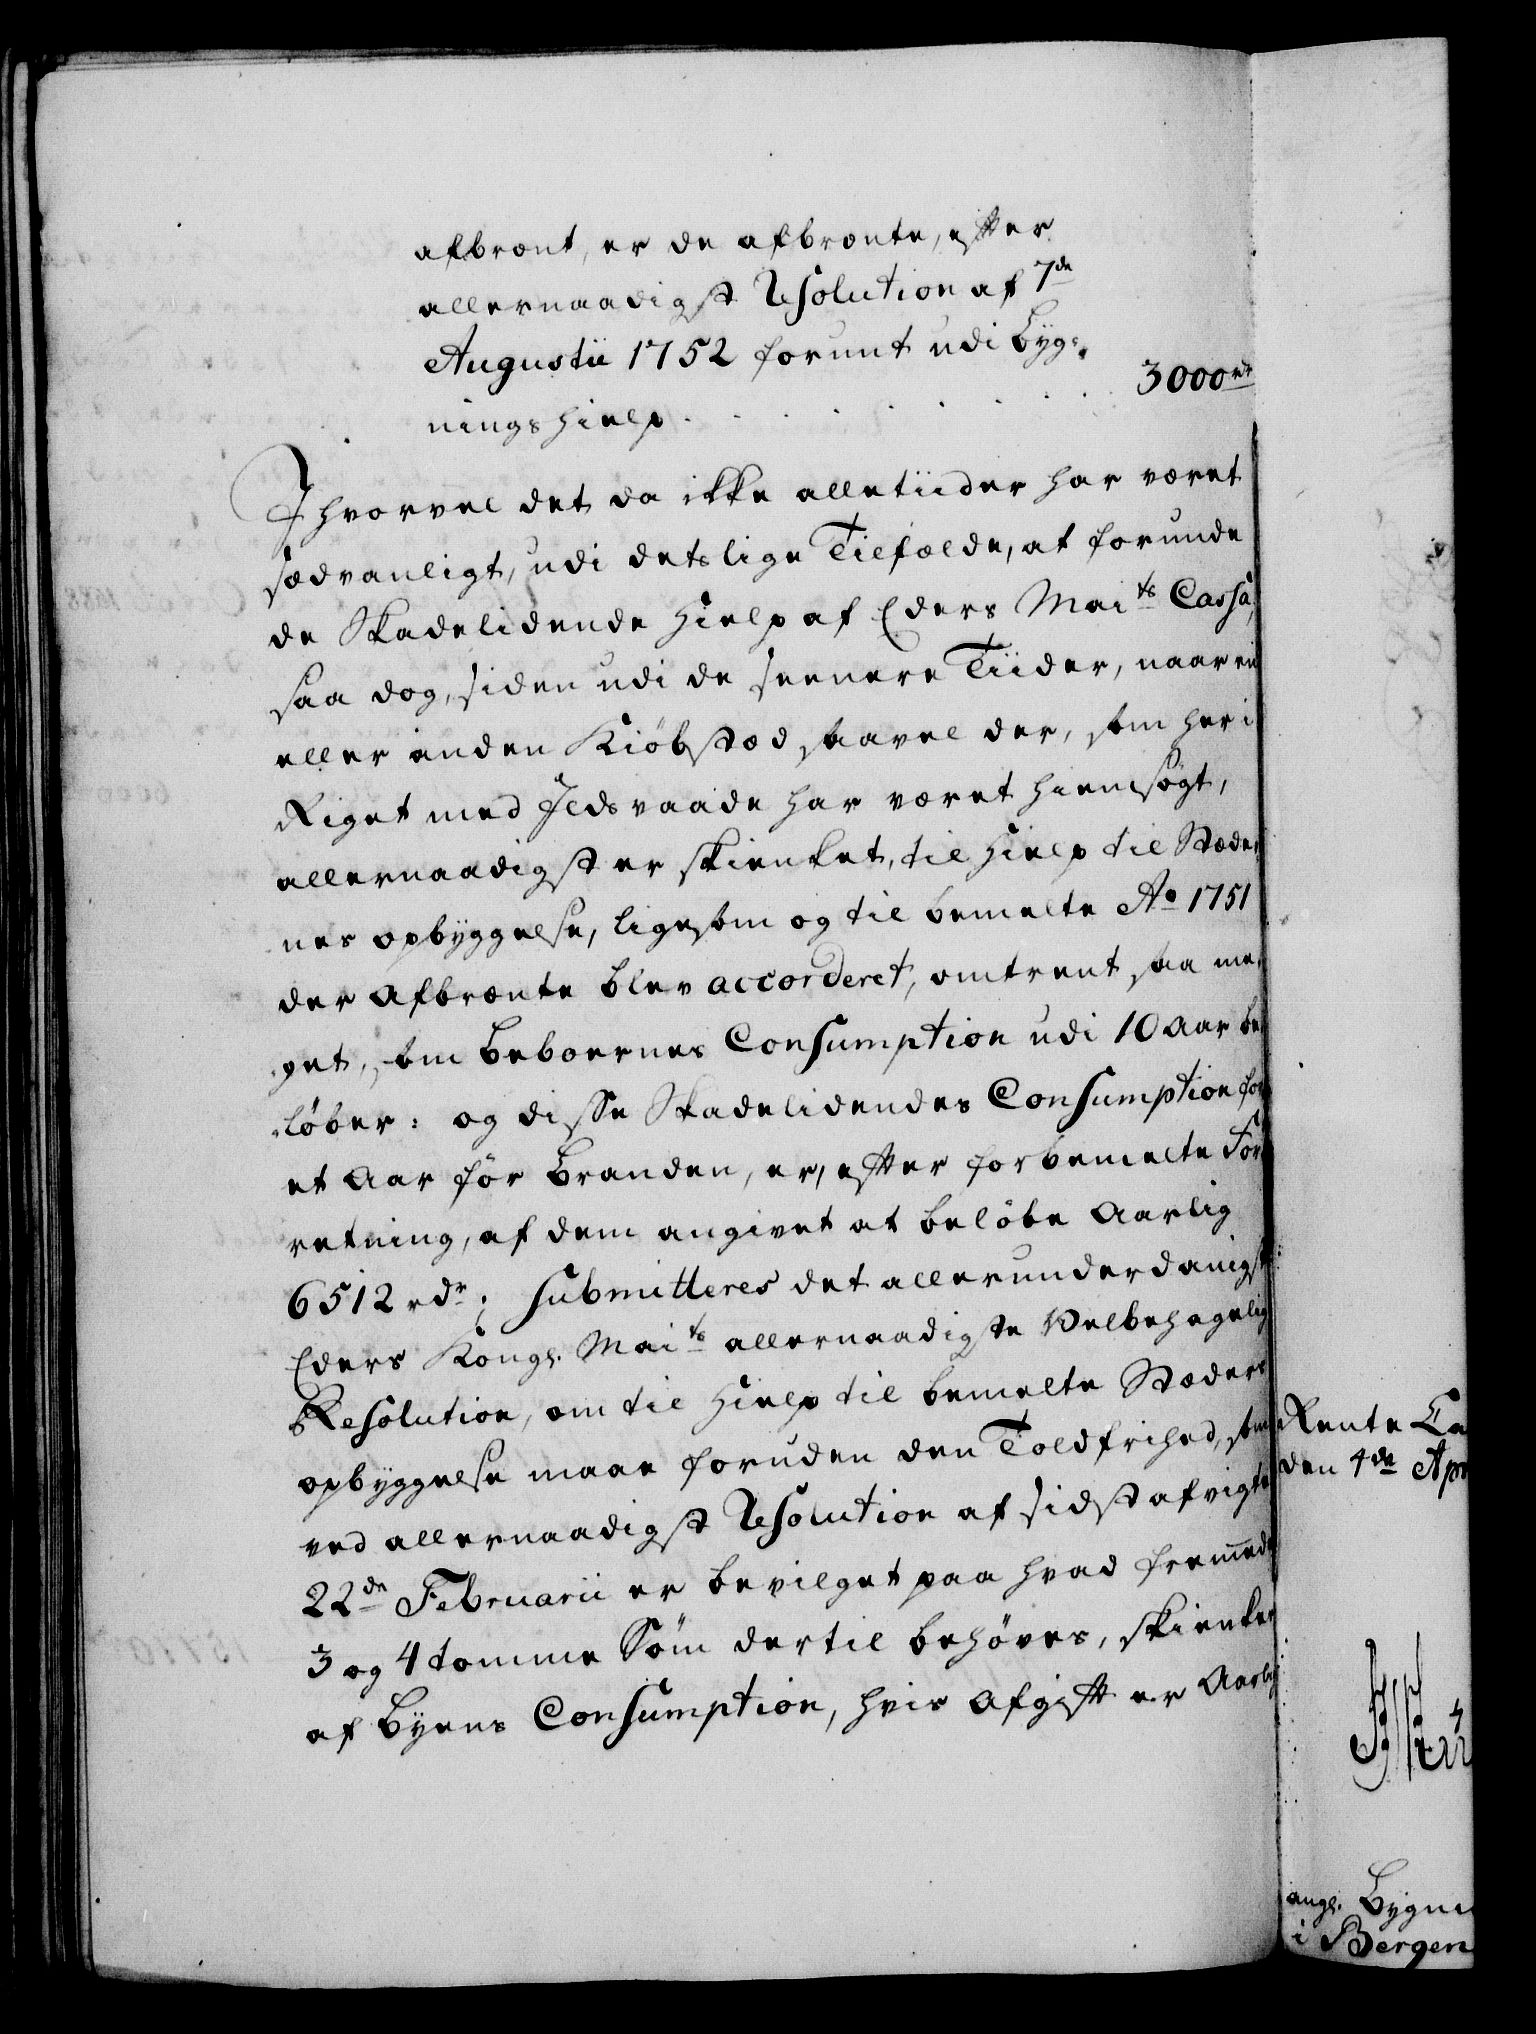 afbrænt, er de afbrænte, efter
allernaadigst Resolution af 7de
Augustii 1752 forunt udi byg-
ningshielp . . . . . . . 3000 rdr
Ihvorvel det da ikke alletiider har været
sædvanligt, udi detslige Tilfælde, at forunde
de Skadelidende Hielp af Eders Maits Cassa,
saa dog, siden udi de seenere Tiider, naar een
eller anden Kiøbstæd saavel der, som her i
Riget med Ildsvaade har været hiemsøgt,
allernaadigst er skienket, til Hielp til Stæder
nes opbyggelse, ligesom og til bemelte Ao 1751
der Afbrænte blev accorderet, omtrent saa me-
get, som beboernes Consumption udi 10 Aar be-
løber: og disse Skadelidendes Consumption for
et Aar før branden, er, efter forbemelte For
retning, af dem angivet at beløbe Aarlig
6512 rdr; submitteres det allerunderdanigst
Eders Kongl. Maits allernaadigste Velbehagelig
Resolution, om til Hielp til bemelte Stæders
opbyggelse maae foruden den Toldfrihed, som
ved allernaadigst Resolution af sidst afvigte
22de Februarii er bevilget paa hvad fremmede
3 og 4 tomme Søm dertil behøves, skienkes
af byens Consumption, hvis Afgift er Aarlig
Rente Ca
den 4de Apr
angl. Bygni
i Bergen